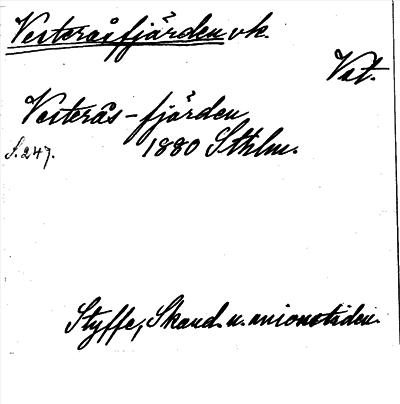 Vesteråsfjärden vk.
Vst.
Vesterås-fjärden
S. 247. 1880 Sthlm.
Styffe, Skand. u. unionstiden.